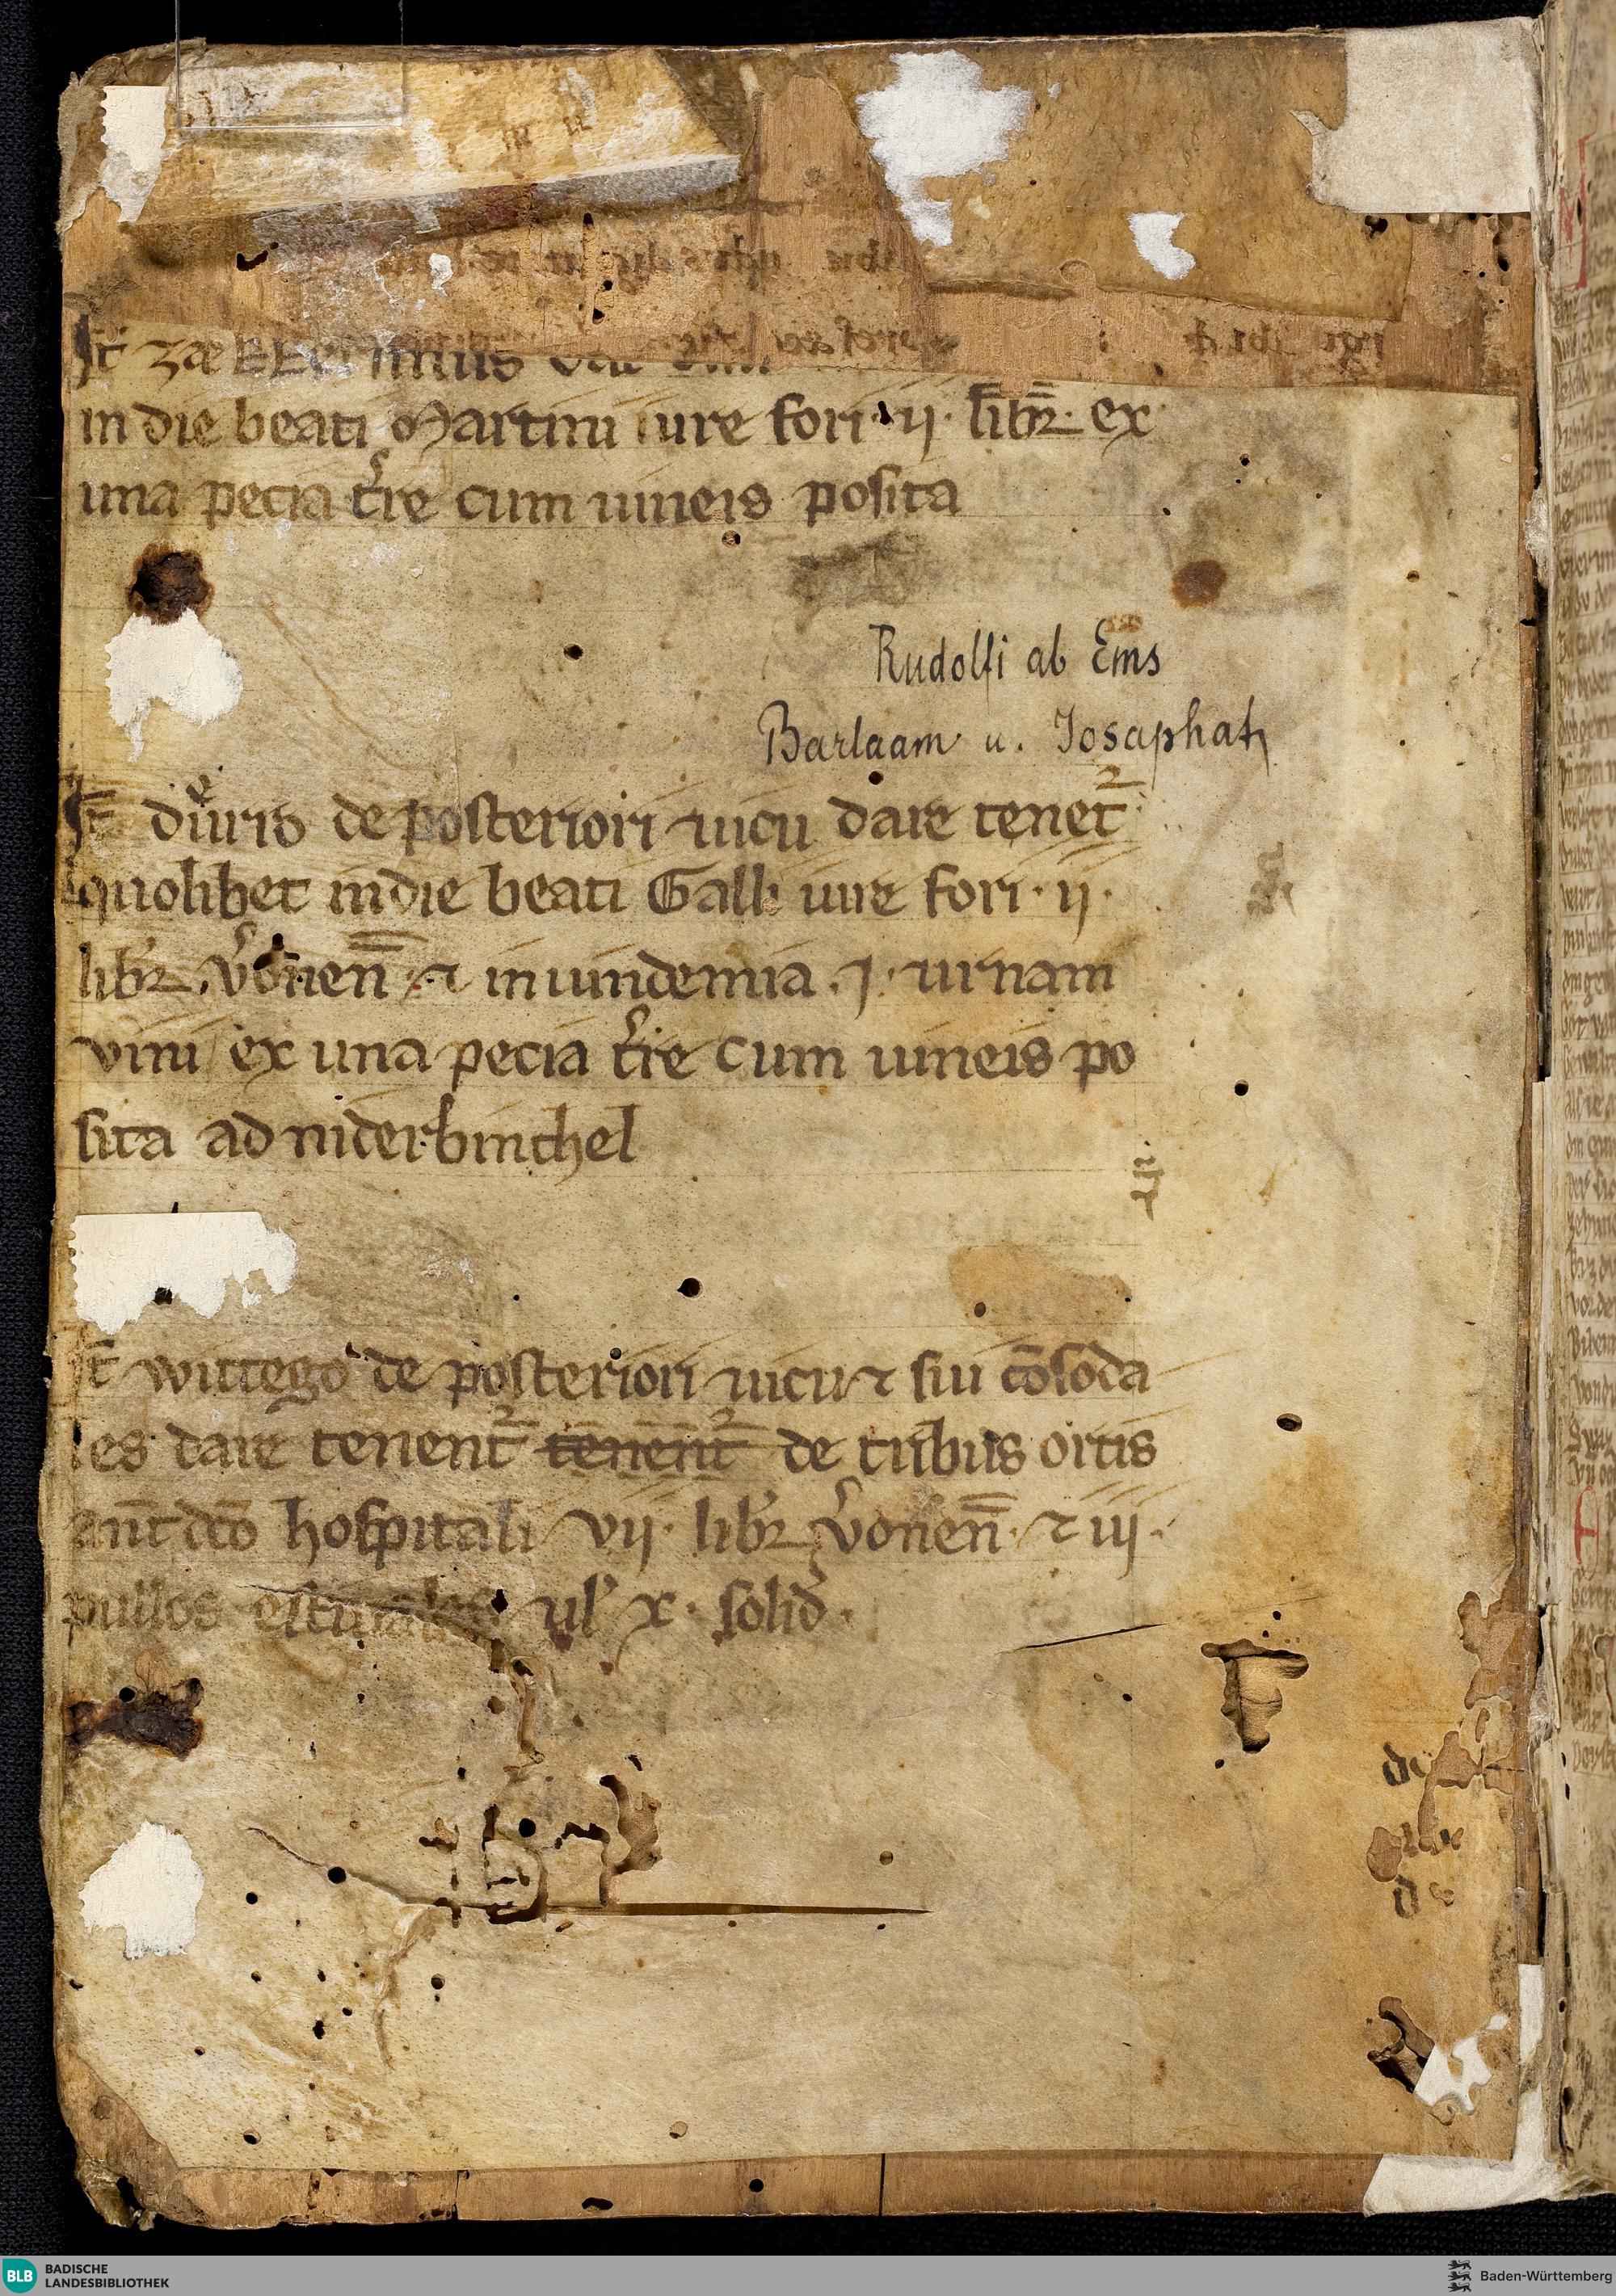 It
in die beati Martini iure fori · ii · libr̄ · ex
una pecia t̓re cum uineis posita
Rudolfi ab Ems
Barlaam u. Josaphat
It̄ de posteriori uicu dare tenet᷑
quolibet in die beati Galli iure fori · ii ·
libr̄ v̓onen̄ · ⁊ in uindemia · j · urnam
vini ex una pecia t̓re cum uineis po
sita ad niderbinthel
It̄ wittego de posteriori uicu ⁊ sui cōsoda
les dare tenent᷑ tenent᷑ de tribus ortis
ant̄dc̄o hospitali vii · libr̄ v̓onen̄ · ⁊ iii ·
pullos ul̓ x · solid̓ ·
de
d
BLB BADISCHE
LANDESBIBLIOTHEK
Baden-Württemberg